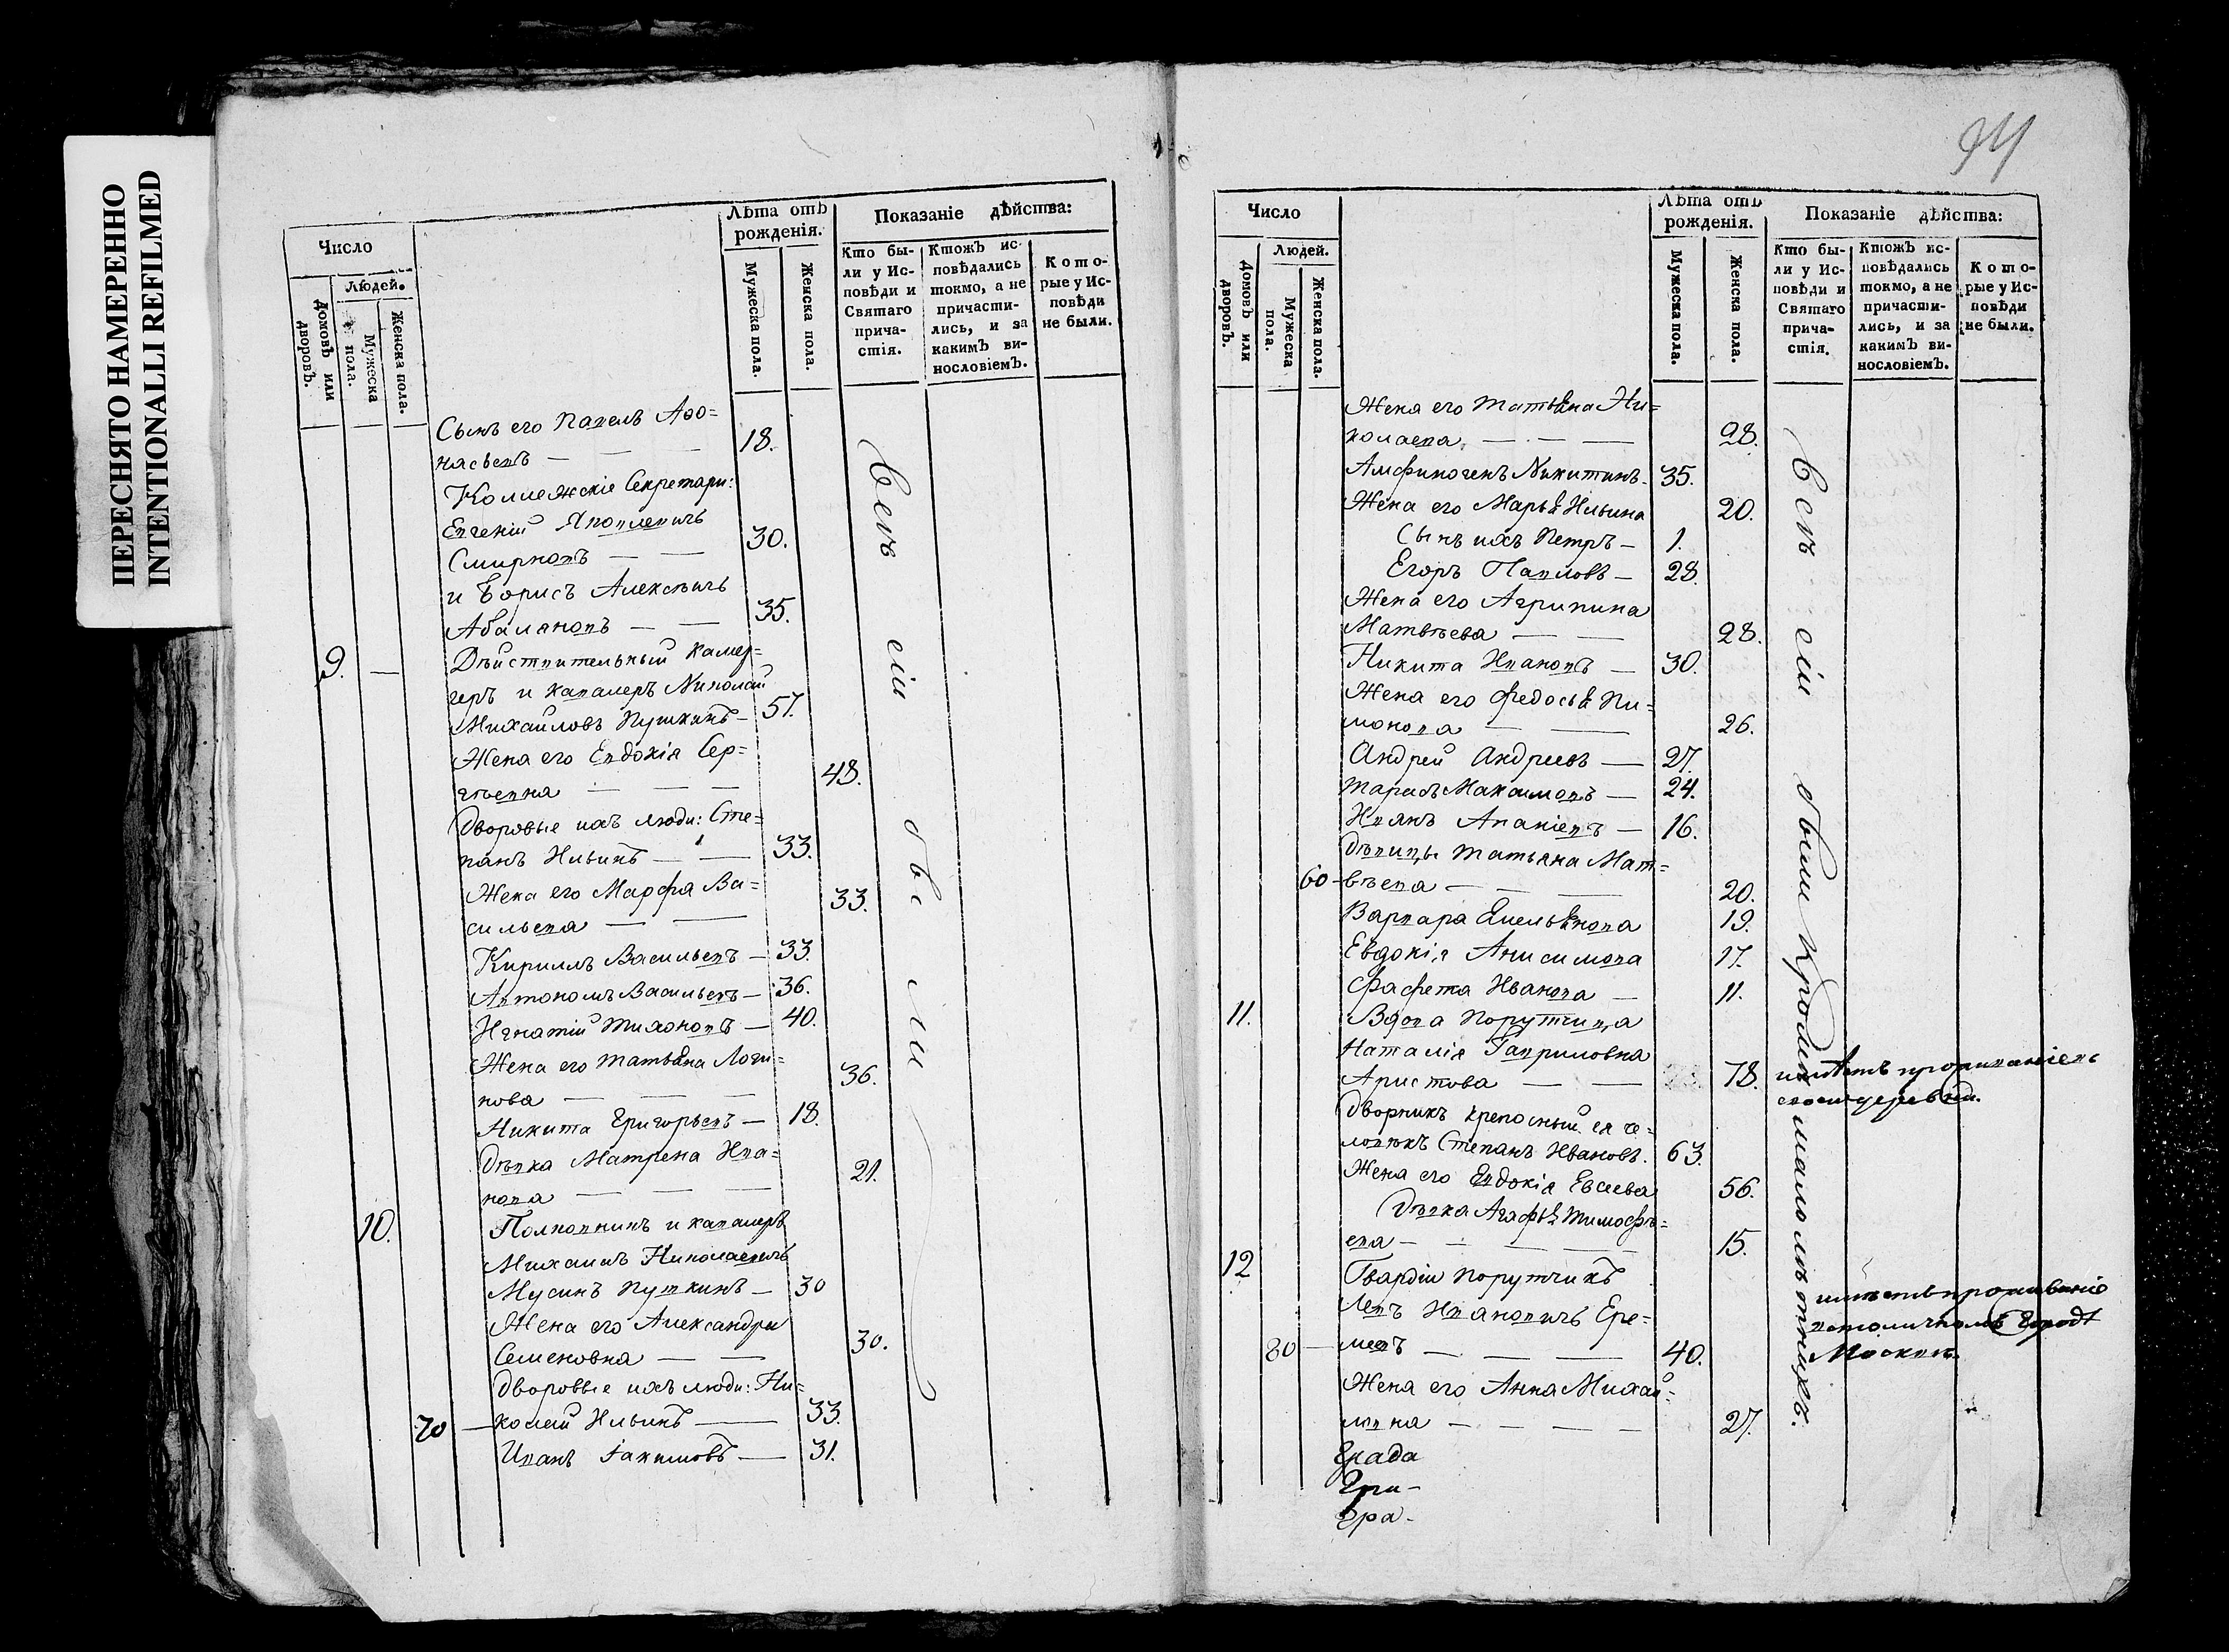 ПЕРЕСНЯТО НАМЕРЕННО
INTENTIONALLI REFILMED
Число
Людей.
Домовъ или дворовъ.
Мужеска пола.
Женска пола.
Лѣта отъ рожденія.
Мужеска пола.
Женска пола.
Показаніе дѣйства:
Кто бы-
ли у Ис-
повѣди и
Святаго
прича-
стія.
Ктожъ ис-
повѣдались
токмо, а не
причасти-
лись, и за
какимъ ви-
нословіемъ.
Кото-
рые у Ис-
повѣди
не были.
Сынъ его Павелъ Афо=
насьевъ — — — 18.
Коллежскіе Секретари:
Евгеній Яковлевичь
Смирновъ — — 30.
и Борисъ Алексѣичь
Абаляновъ — — 35.
9. — Дѣйствительный Камер=
геръ и кавалеръ Николай
Михайловъ Пушкинъ — 57.
Жена его Евдокія Сер=
гѣевна — — — 48.
Дворовые ихъ люди: Сте=
панъ Ильинъ — — 33.
Жена его Марфа Ва=
сильева — — 33.
Кириллъ Васильевъ — 33.
Автономъ Васильевъ — 36.
Игнатій Тихоновъ — 40.
Жена его Татьяна Логи=
нова — — — 36.
Никита Григорьевъ — 18.
Дѣвка Матрена Ива=
нова — — — 21.
10. Полковникъ и кавалеръ
Михаилъ Николаевичь
Мусинъ Пушкинъ — 30
Жена его Александра
Семеновна — — 30.
Дворовые ихъ люди: Ни=
70 — колай Ильинъ — 33.
Иванъ Іакимовъ — 31.
Всѣ сіи были
94
Число
Людей.
Домовъ или дворовъ.
Мужеска пола.
Женска пола.
Лѣта отъ рожденія.
Мужеска пола.
Женска пола.
Показаніе дѣйства:
Кто бы-
ли у Ис-
повѣди и
Святаго
прича-
стія.
Ктожъ ис-
повѣдались
токмо, а не
причасти-
лись, и за
какимъ ви-
нословіемъ.
Кото-
рые у Ис-
повѣди
не были.
Жена его Татьяна Ни=
колаева — — — 28.
Амфиногенъ Никитинъ. 35.
Жена его Марья Ильина 20.
Сынъ ихъ Петръ — 1.
Егоръ Павловъ — 28.
Жена его Агрипина
Матвѣева — — 28.
Никита Ивановъ — 30.
Жена его Федосья Пи=
монова — — 26.
Андрей Андреевъ — 27.
Тарасъ Максимовъ — 24.
Иванъ Ананіевъ — 16.
Дѣвицы Татьяна Мат=
60 — вѣева — — — 20.
Варвара Емельянова 19.
Евдокія Анисимова 17.
Фафета Иванова — 11.
11. Вдова Порутчица
Наталія Гавриловна
Аристова — — 78. имѣетъ проживаніевъ
своей деревни.
Дворникъ крепосный ея че=
ловѣкъ Степанъ Ивановъ. 63.
Жена его Евдокія Евсеева 56.
Дѣвка Агафья Тимофѣ=
ева — — — — 15.
12 Гвардіи Порутчикъ
Левъ Ивановичь Ере=
80 — меевъ — — — 40.
имѣетъ проживаніе
въ столичномъ Городѣ
Москвѣ.
Жена его Анна Михай=
ловна — — — — 27.
Всѣ сіи были кромѣ малолѣтныхъ.